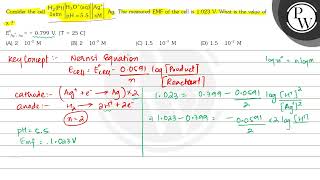 Consider the cell H₂|Pt 1atm | H₃O⁺(aq) pH = 5.5 || Ag⁺ xM | Ag. The measured EMF of the cell is 1.023 V. What is the value of x ?
E°Ag⁺, Ag = + 0.799 V. [T = 25 C]
(A) 2 · 10⁻² M (B) 2 · 10⁻³ M (C) 1.5 · 10⁻³ M (D) 1.5 · 10⁻² M
Pw
Key Concept :- Nernst Equation
log mⁿ = n log m
Ecell = E°cell - 0.0591/n log [Product]/[Reactant]
cathode:- (Ag⁺ + e⁻ → Ag) × 2
anode:- H₂ → 2H⁺ + 2e⁻
n = 2
1.023 = 0.799 - 0.0591/2 log [H⁺]²/[Ag⁺]²
= 1.023 - 0.799 = - 0.0591/2 × 2 log [H⁺]
pH = 5.5
Emf = 1.023 V